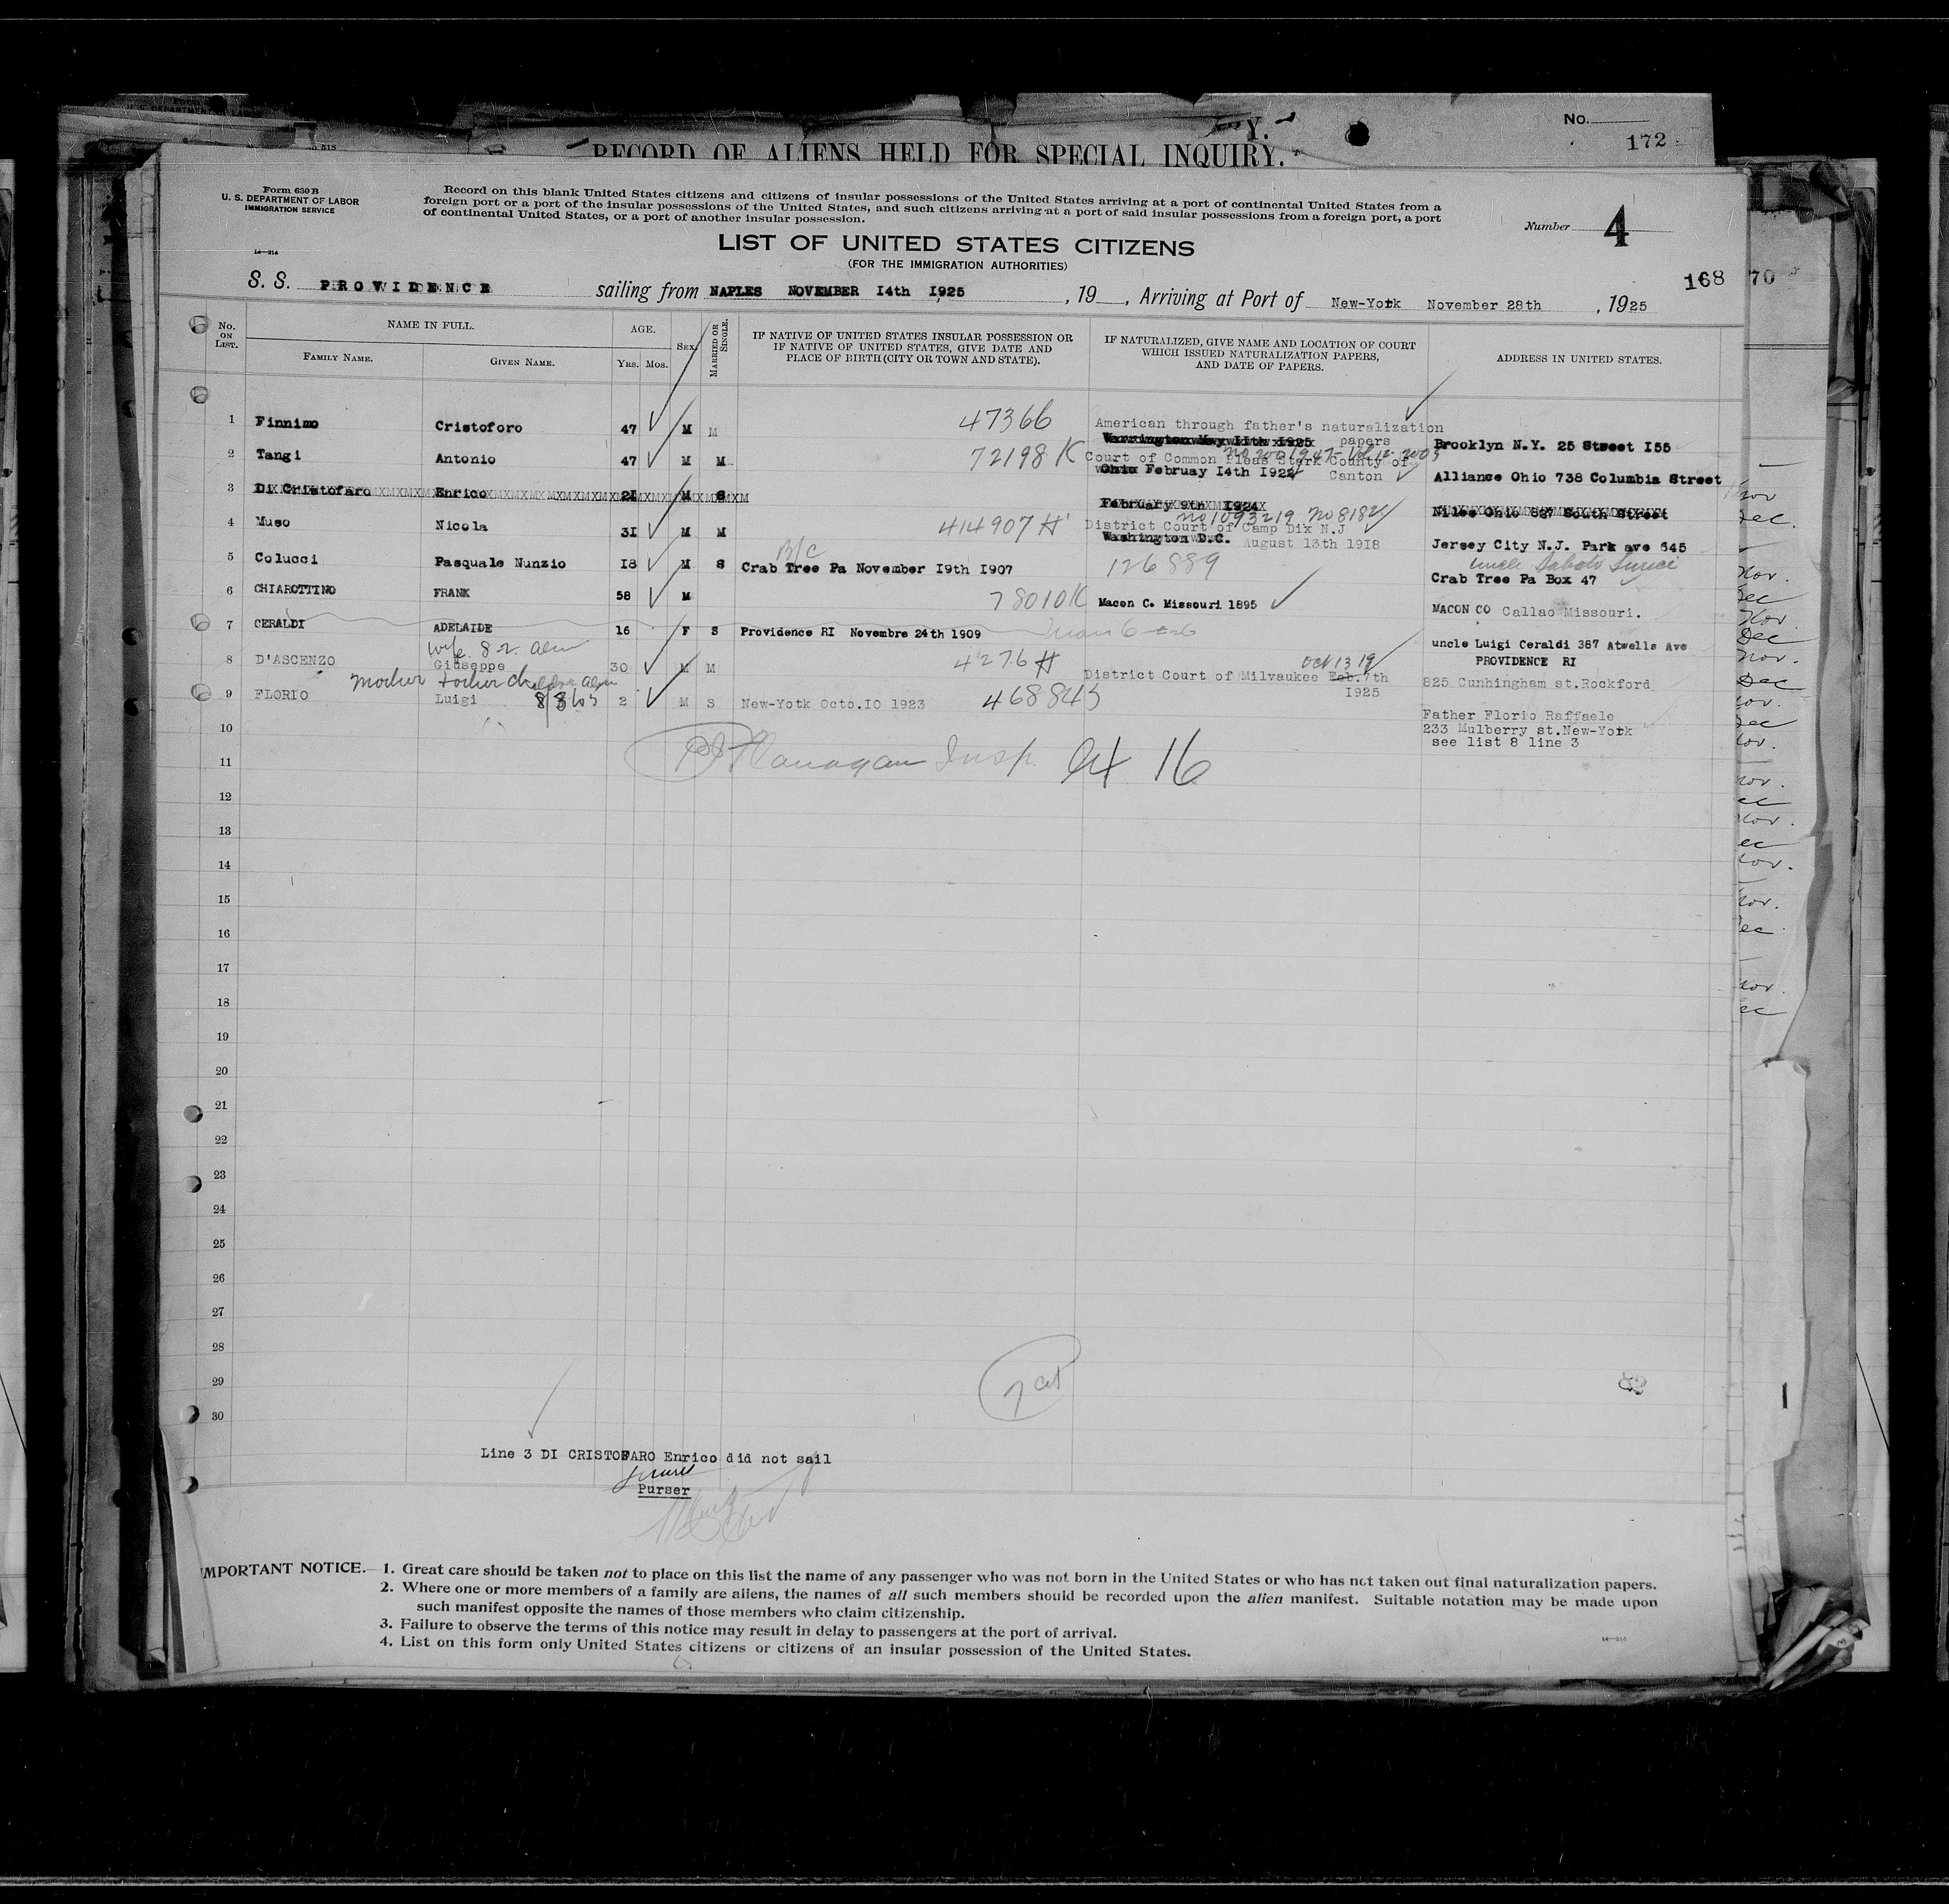 No.
172
RECORD OF ALIENS HELD FOR SPECIAL INQUIRY.
Form 630 B
U. S. DEPARTMENT OF LABOR
IMMIGRATION SERVICE
Record on this blank United States citizens and citizens of insular possessions of the United States arriving at a port of continental United States from a
foreign port or a port of the insular possessions of the United States, and such citizens arriving at a port of said insular possessions from a foreign port, a port
of continental United States, or a port of another insular possession.
Number 4
14—214
LIST OF UNITED STATES CITIZENS
(FOR THE IMMIGRATION AUTHORITIES)
168 70
S. S. PROVIDENCE sailing from NAPLES NOVEMBER I4th I925, 19 , Arriving at Port of New-York November 28th , 1925
No. ON LIST.
NAME IN FULL.
FAMILY NAME.
GIVEN NAME.
AGE.
YRS. MOS.
SEX.
MARRIED OR SINGLE.
IF NATIVE OF UNITED STATES INSULAR POSSESSION OR
IF NATIVE OF UNITED STATES, GIVE DATE AND
PLACE OF BIRTH (CITY OR TOWN AND STATE).
IF NATURALIZED, GIVE NAME AND LOCATION OF COURT
WHICH ISSUED NATURALIZATION PAPERS,
AND DATE OF PAPERS.
ADDRESS IN UNITED STATES.
1 Finnimo Cristoforo 47 M M 47366 American through father's naturalization
papers Brooklyn N.Y. 25 Street I55
2 Tangi Antonio 47 M M 72198 K Court of Common Pleas Stark County of
Ohio Februay I4th I922 Canton Alliance Ohio 738 Columbia Street
3 Di Cristofaro Enrico 2I M S February 9th I924 Niles Ohio 827 South Street
4 Muso Nicola 3I M M 414907 H no 1093219 no 8182
District Court of Camp Dix N.J
Washington D.C. August 13th 1918 Jersey City N.J. Park ave 645
5 Colucci Pasquale Nunzio I8 M S B/C
Crab Tree Pa November I9th I907 126889 uncle
Crab Tree Pa Box 47
6 CHIAROTTINO FRANK 58 M 78010 K Macon C. Missouri 1895 MACON CO Callao Missouri.
7 CERALDI ADELAIDE 16 F S Providence RI Novembre 24th 1909 uncle Luigi Ceraldi 387 Atwells Ave
PROVIDENCE RI
wife 8 2. alien
8 D'ASCENZO Giuseppe 30 M M 4276 H Oct 13 19
District Court of Milvaukee Feb. 7th
I925 825 Cunhingham st.Rockford
mother
9 FLORIO Luigi 2 M S New-Yotk Octo.IO 1923 468845 Father Florio Raffaele
233 Mulberry st.New-York
see list 8 line 3
10
11 Flanagan Insp. 16
12
13
14
15
16
17
18
19
20
21
22
23
24
25
26
27
28
29
30
Line 3 DI CRISTOFARO Enrico did not sail
Purser
IMPORTANT NOTICE.—1. Great care should be taken not to place on this list the name of any passenger who was not born in the United States or who has not taken out final naturalization papers.
2. Where one or more members of a family are aliens, the names of all such members should be recorded upon the alien manifest. Suitable notation may be made upon
such manifest opposite the names of those members who claim citizenship.
3. Failure to observe the terms of this notice may result in delay to passengers at the port of arrival.
4. List on this form only United States citizens or citizens of an insular possession of the United States.